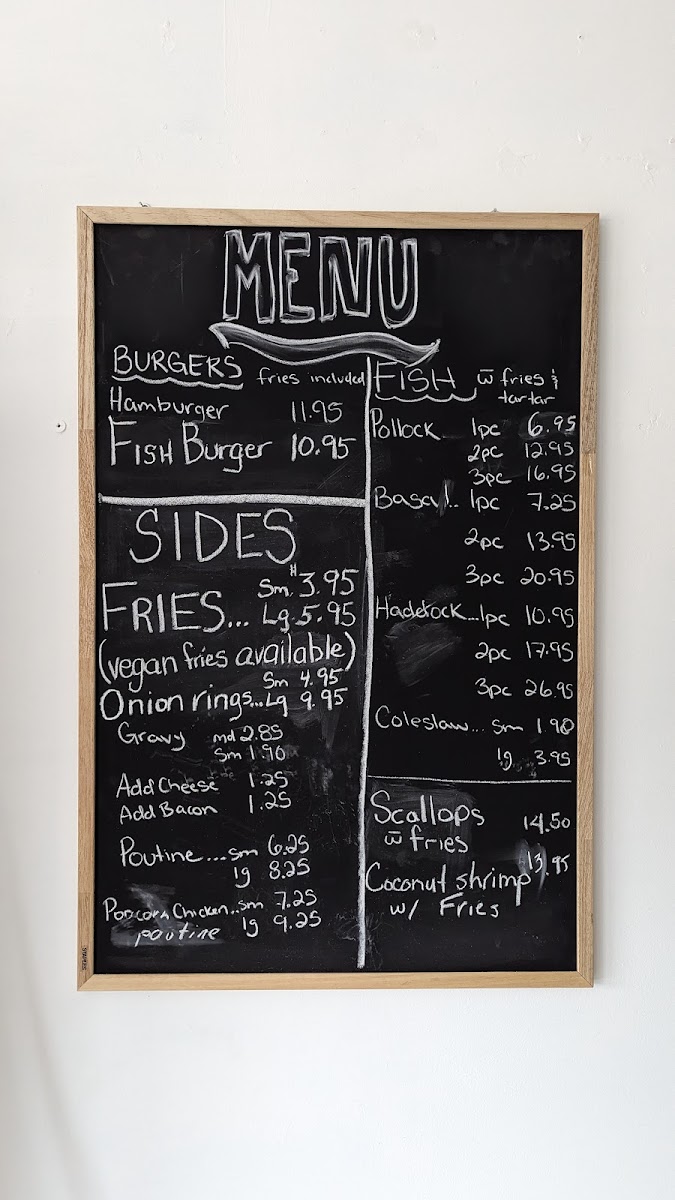 MENU
BURGERS fries included
Hamburger 11.95
FISH Burger 10.95
SIDES
FRIES... Sm. $3.95
Lg. 5.95
(vegan fries available)
Onion rings... Sm 4.95
Lg 9.95
Gravy md 2.85
Sm 1.90
Add Cheese 1.25
Add Bacon 1.25
Poutine.... sm 6.25
lg 8.25
Popcorn Chicken.. sm 7.25
poutine lg 9.25
FISH w̅ fries &
tartar
Pollock 1pc 6.95
2pc 12.95
3pc 16.95
1pc 7.25
2pc 13.95
3pc 20.95
Haddock... 1pc 10.95
2pc 17.95
3pc 26.95
Coleslaw... sm 1.90
lg 3.95
Scallops 14.50
w̅ fries
Coconut shrimp 13.95
w/ Fries
STAPLES